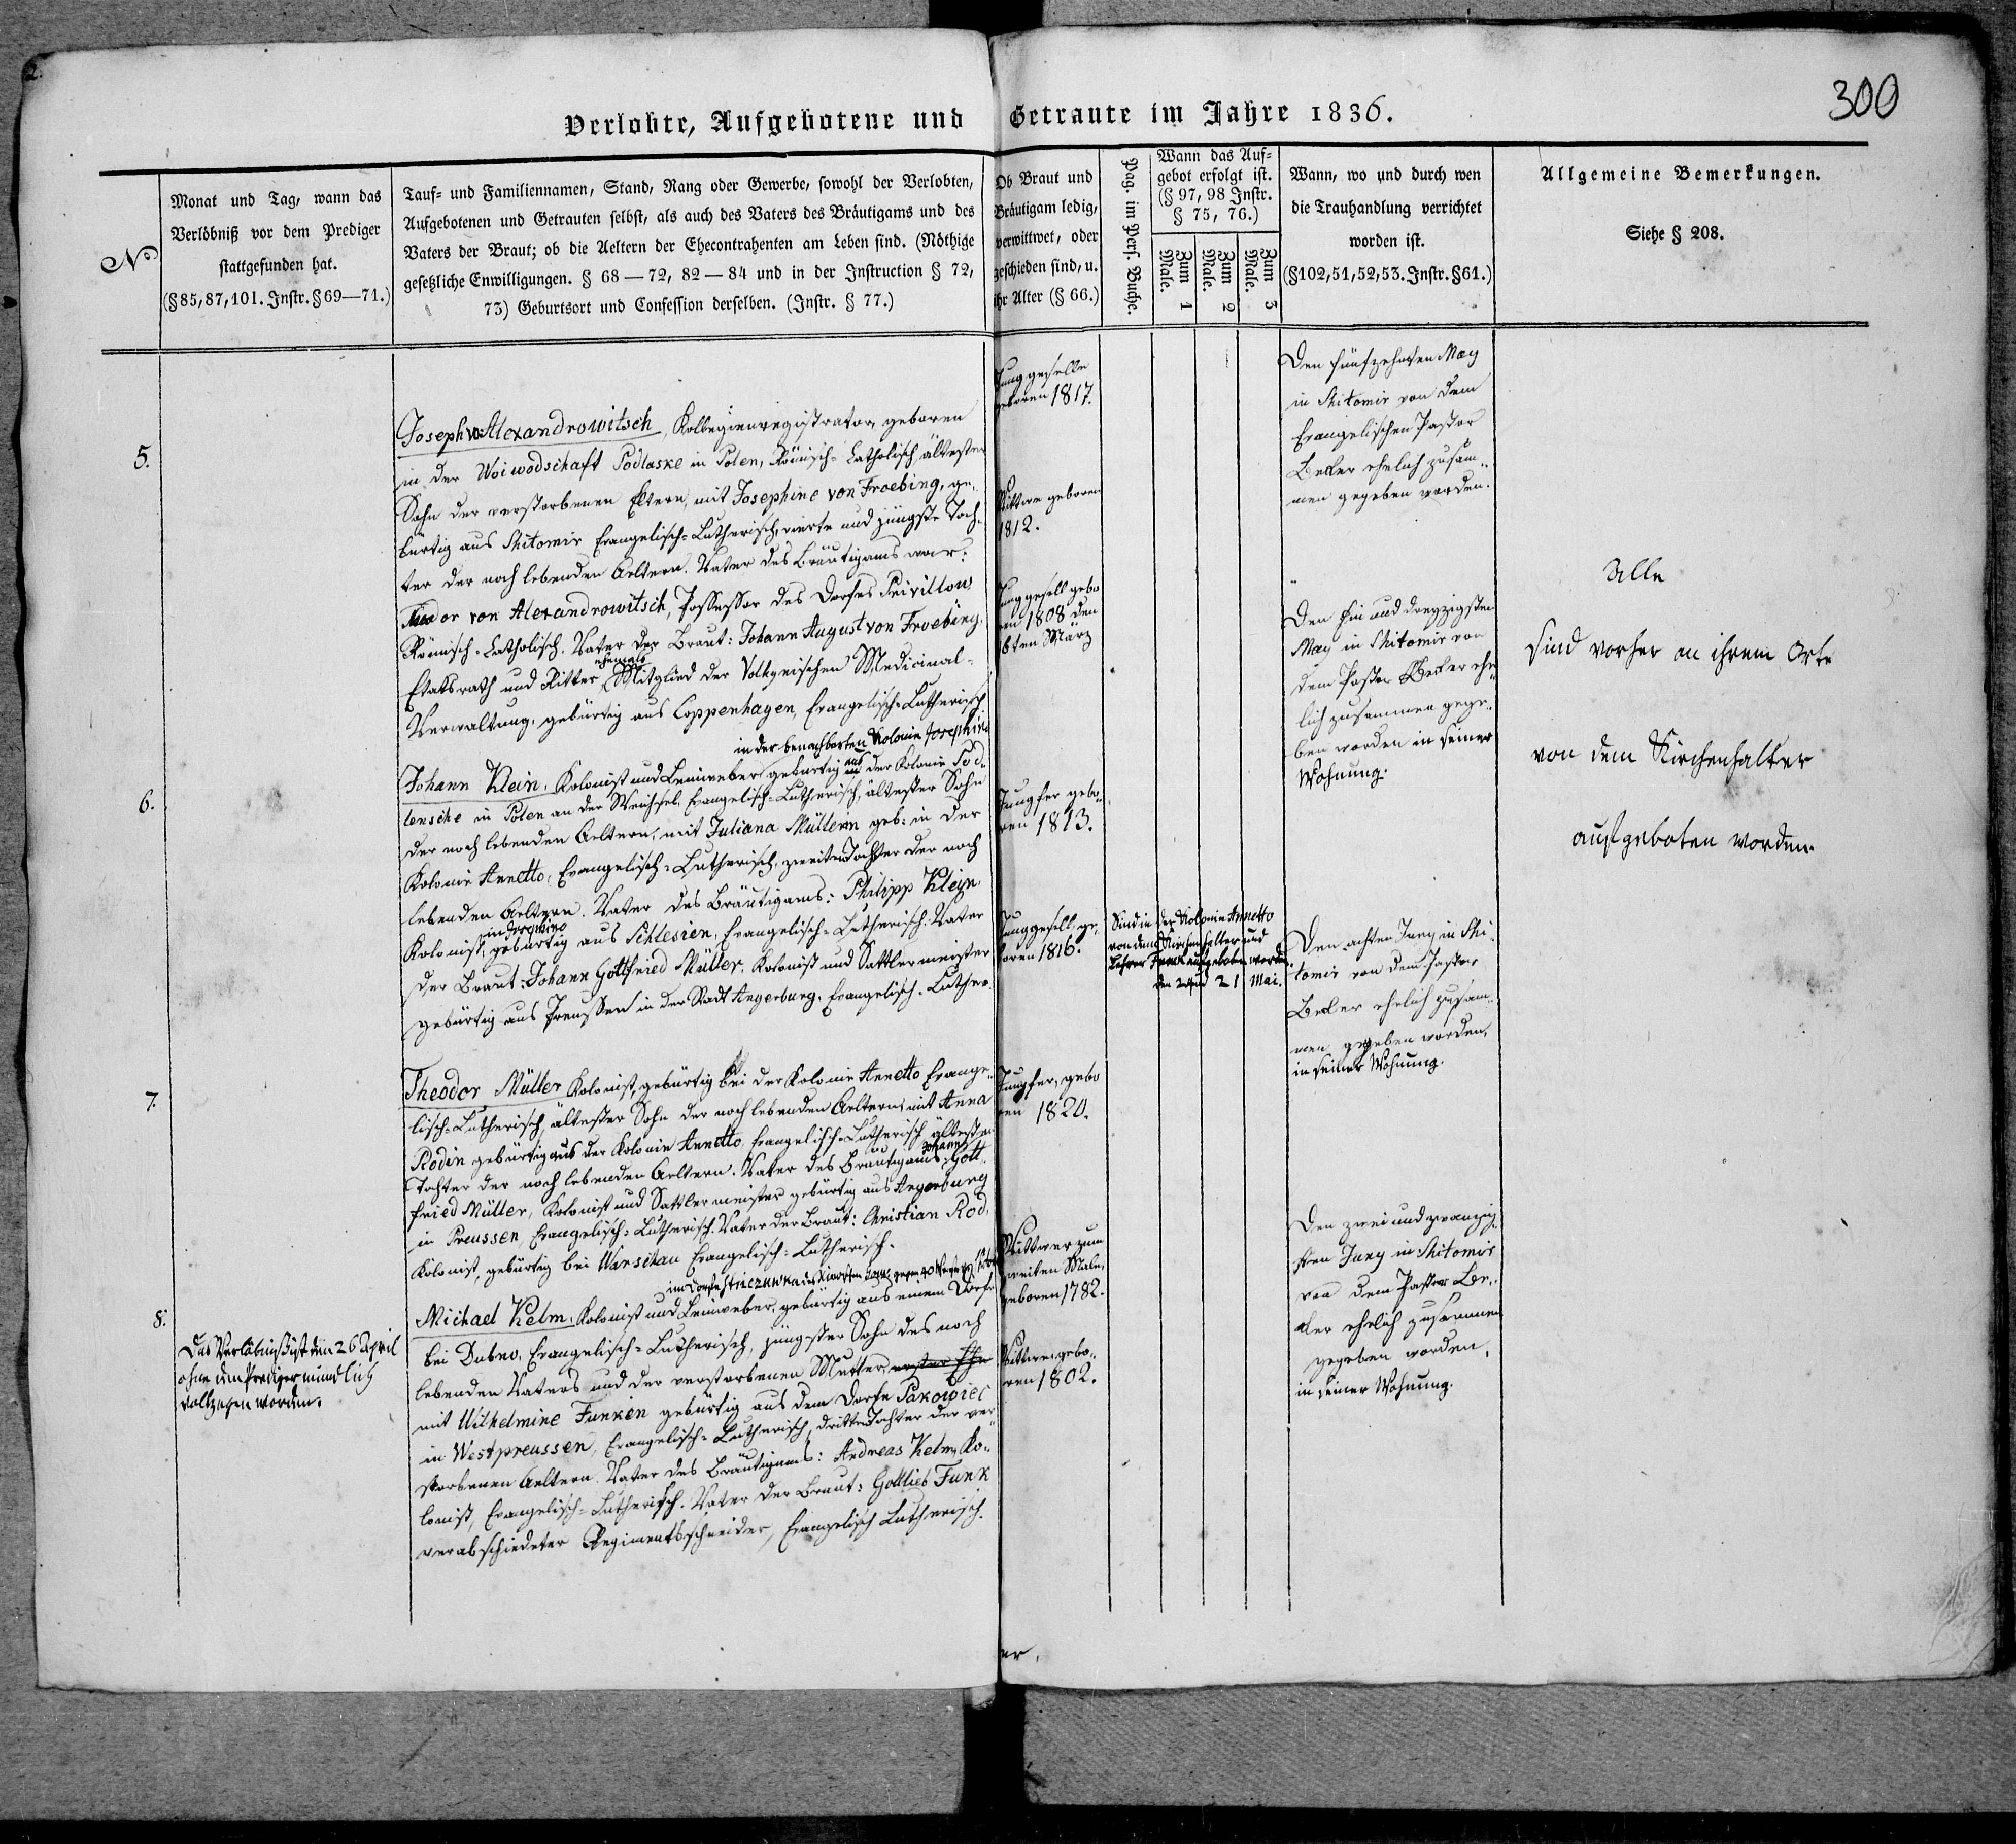 2.
300
Verlobte, Aufgebotene und Getraute im Jahre 1836.
No
Monat und Tag, wann das
Verlöbniß vor dem Prediger
stattgefunden hat.
(§85, 87, 101. Instr. §69—71.)
Tauf= und Familiennamen, Stand, Rang oder Gewerbe, sowohl der Verlobten,
Aufgebotenen und Getrauten selbst, als auch des Vaters des Bräutigams und des
Vaters der Braut; ob die Aeltern der Ehecontrahenten am Leben sind. (Nöthige
gesetzliche Enwilligungen. § 68—72, 82—84 und in der Instruction § 72,
73) Geburtsort und Confession derselben. (Instr. § 77.)
Ob Braut und
Bräutigam ledig,
verwittwet, oder
geschieden sind, u.
ihr Alter (§ 66.)
Pag. im Pers. Buche.
Wann das Auf=
gebot erfolgt ist.
(§ 97, 98 Instr.
§ 75, 76.)
Zum 1
Male.
Zum 2
Male.
Zum 3
Male.
Wann, wo und durch wen
die Trauhandlung verrichtet
worden ist.
(§102, 51, 52, 53. Instr. §61.)
Allgemeine Bemerkungen.
Siehe § 208.
5.
Joseph v. Alexandrowitsch, Kollegienregistrator, geboren
in der Woiwodschaft Podlaske in Polen, Römisch=Catholisch, ältester
Sohn der verstorbenen Eltern, mit Josephine von Froebing, ge=
bürtig aus Shitomir Evangelisch=Lutherisch, vierte und jüngste Toch=
ter der noch lebenden Aeltern. Vater des Bräutigams war:
von Alexandrowitsch, Possessor des Dorfes Privillow,
Römisch=Catholisch. Vater der Braut: Johann August von Froebing,
Etatsrath und Ritter, ehemals Mitglied der Volhynischen Medicinal=
Verwaltung, gebürtig aus Coppenhagen, Evangelisch=Lutherisch
Junggeselle
geboren 1817.
Wittwe geboren
1812.
Den fünfzehnten May
in Shitomir von dem
Evangelischen Pastor
Becker ehelich zusam=
men gegeben worden.
6.
in der benachbarten Kolonie Josephino
Johann Klein, Kolonist und Leinweber gebürtig aus der Kolonie Pod=
lensche in Polen an der Weichsel, Evangelisch=Lutherisch, ältester Sohn
der noch lebenden Aeltern, mit Juliana Müllerin geb: in der
Kolonie Annetto, Evangelisch=Lutherisch, zweite Tochter der noch
lebenden Aeltern. Vater des Bräutigams: Philipp Klein,
Kolonist, in Josephino gebürtig aus Schlesien, Evangelisch=Lutherisch. Vater
der Braut: Johann Gottfried Müller, Kolonist und Sattlermeister
gebürtig aus Preussen in der Stadt Angerburg, Evangelisch=Luther.
Junggesell gebo
ren 1808 den
6ten März
Jungfer gebo=
ren 1813.
Den Ein und dreyzigsten
May in Shitomir von
dem Pastor Becker ehe=
lich zusammen gege=
ben worden in seiner
Wohnung.
Alle
sind vorher an ihrem Orte
von dem Kirchenhalter
aufgeboten worden.
7.
Theodor Müller Kolonist, gebürtig bei der Kolonie Annetto Evange=
lisch=Lutherisch, ältester Sohn der noch lebenden Aeltern, mit Anna
Rodin gebürtig aus der Kolonie Annetto, Evangelisch=Lutherisch älteste
Tochter der noch lebenden Aeltern. Vater des Bräutigams Johann Gott=
fried Müller, Kolonist und Sattlermeister gebürtig aus Angerburg
in Preussen, Evangelisch=Lutherisch. Vater der Braut: Christian Rod,
Kolonist, gebürtig bei Warschau Evangelisch=Lutherisch.
Junggesell, ge=
boren 1816.
Jungfer, gebo
ren 1820.
Sind in der Kolonie Annetto
von dem Kirchenhalter und
Lehrer Funk aufgeboten worden
den 21 Mai.
Den achten Juny in Shi=
tomir von dem Pastor
Becker ehelich zusam=
men gegeben worden,
in seiner Wohnung.
8.
Das Verlöbniß ist den 26 April
ohne dem Prediger mündlich
vollzogen worden.
Michael Kelm, Kolonist und Leinweber, gebürtig aus einem Dorfe
bei Dubno, Evangelisch=Lutherisch, jüngster Sohn des noch
lebenden Vaters und der verstorbenen Mutter, erster Ehe
mit Wilhelmine Funken gebürtig aus dem Dorfe Pakowiec
in Westpreussen, Evangelisch=Lutherisch, dritte Tochter der ver=
storbenen Aeltern. Vater des Bräutigams: Andreas Kelm, Ko=
lonist, Evangelisch=Lutherisch. Vater der Braut: Gottlieb Funk
verabschiedeter Regimentsschneider, Evangelisch Lutherisch.
Wittwer zum
zweiten Male,
geboren 1782.
Wittwe gebo=
ren 1802.
Den zwei und zwanzig=
sten Juny in Shitomir
von dem Pastor Bec=
ker ehelich zusammen
gegeben worden,
in seiner Wohnung.